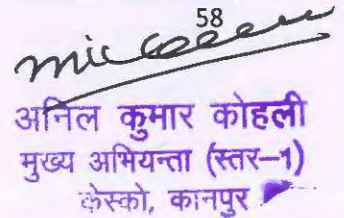 58
अनिल कुमार कोहली
मुख्य अभियन्ता (स्तर–1)
केस्को, कानपुर